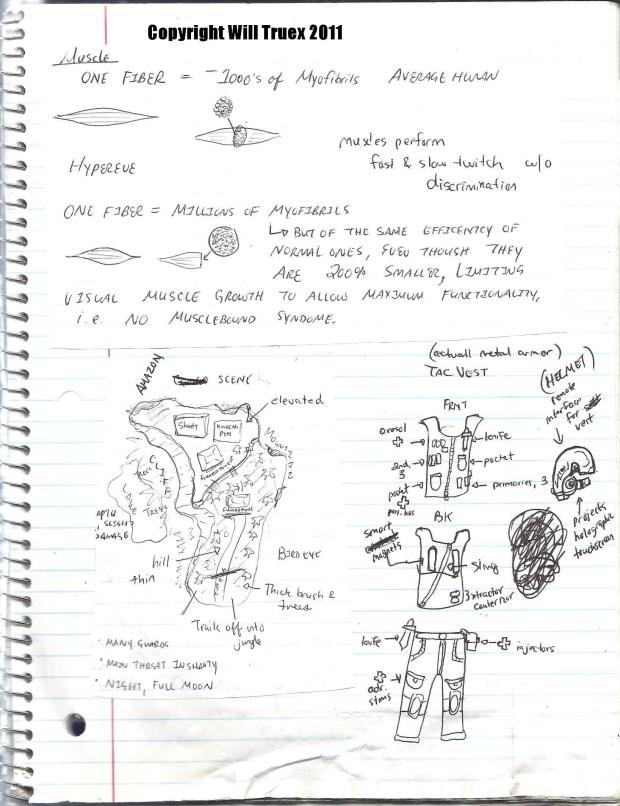 Copyright Will Truex 2011
Muscle
ONE FIBER = ~1000's of Myofibrils AVERAGE HUMAN
muscles perform
fast & slow twitch w/o
discrimination
HYPEREVE
ONE FIBER = MILLIONS OF MYOFIBRILS
↳ BUT OF THE SAME EFFICENTCY OF
NORMAL ONES, EVEN THOUGH THEY
ARE 200% SMALLER, LIMITING
VISUAL MUSCLE GROWTH TO ALLOW MAXIMUM FUNCTIONALITY,
i.e. NO MUSCLEBOUND SYNDOME.
AMAZON
SCENE
elevated
Shanty
HOLDING PEN
Mountain
CLIFF
TREES
TREES
DAMAGE
BIRD EYE
hill
thin
Thick brush &
trees
Trails off into
jungle
• MANY GUARDS
• MAIN THREAT IN SHANTY
• NIGHT, FULL MOON
(actuall metal armor)
TAC VEST
(HELMET)
remote
interface
for
vest
FRNT
aresol
knife
2nd, 3
pocket
pocket
primaries, 3
projects
holographic
touchscreen
BK
smart
magnets
sling
3xtractor
knife
injectors
adr.
stims